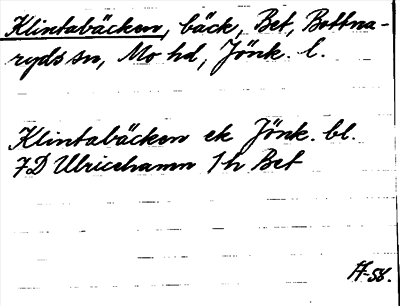 Klintabäcken, bäck, Bet, Bottna-
ryds sn, Mo hd, Jönk. l.
Klintabäcken ek Jönk. bl.
7D Ulricehamn 1h Bet
H-58.